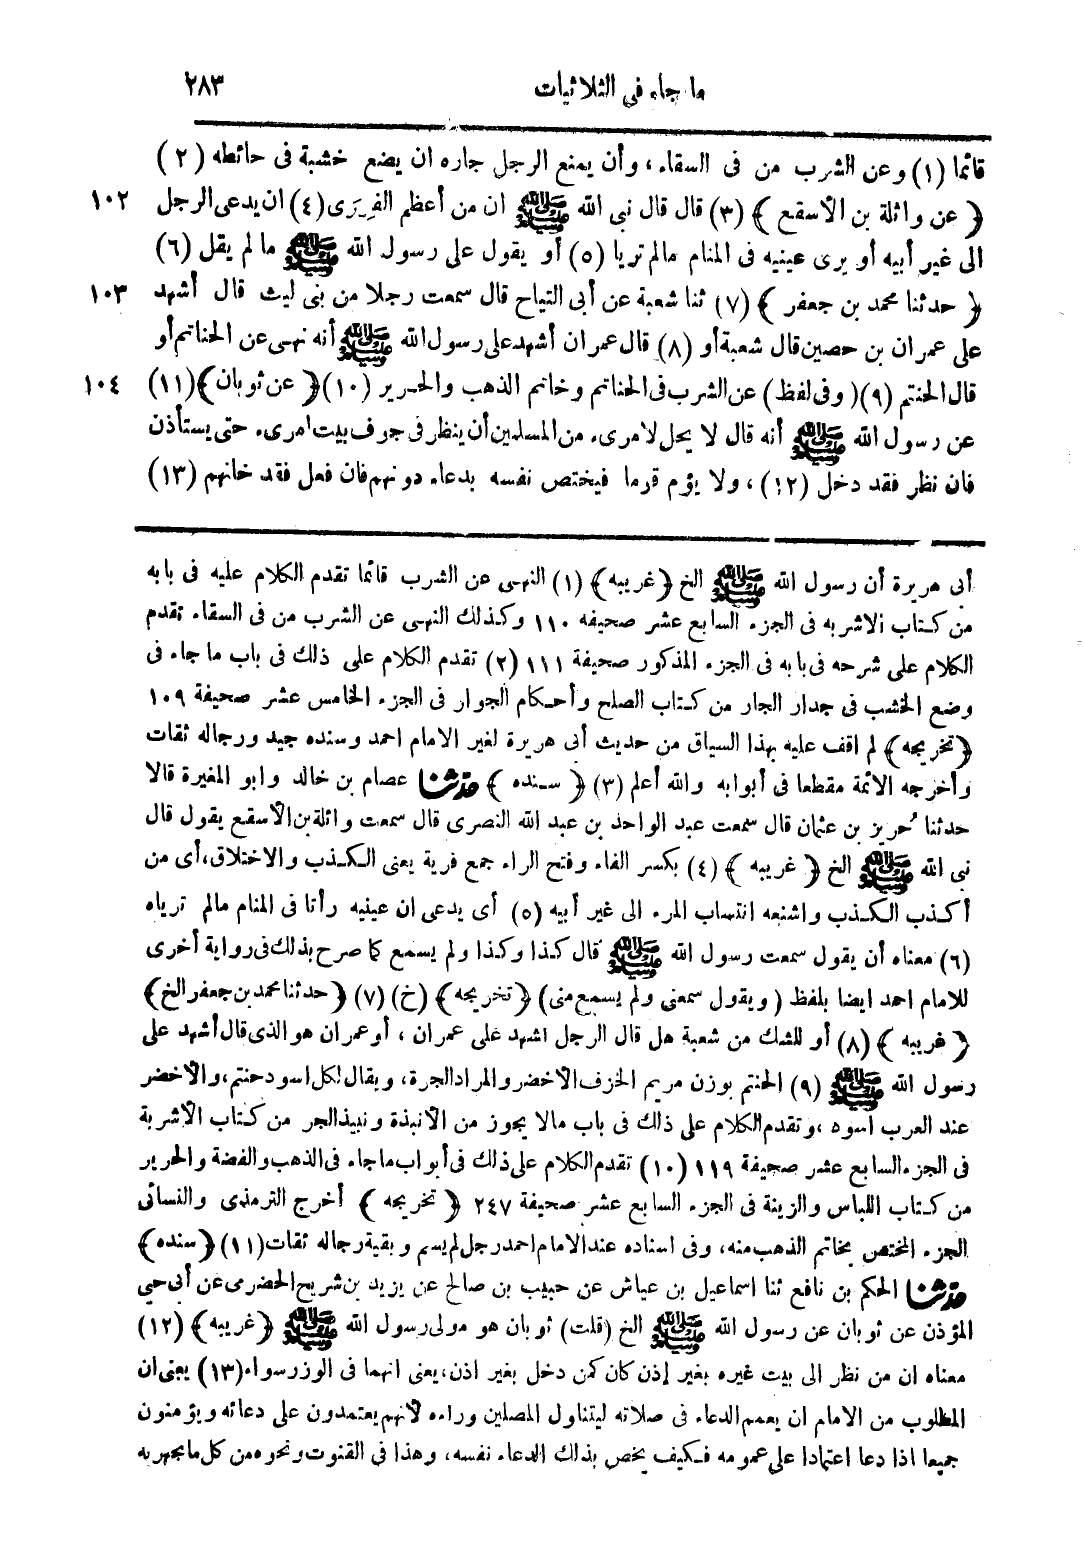 ما جاء في الثلاثيات ٢٨٣
قائما (١) وعن الشرب من فى السقاء ، وأن يمنع الرجل جاره ان يضع خشبة فى حائطه (٢)
﴿ عن واثلة بن الأسقع ﴾ (٣) قال قال نبى الله ﷺ ان من أعظم الفرى (٤) ان يدعى الرجل ١٠٢
الى غير أبيه أو يرى عينيه فى المنام مالم تريا (٥) أو يقول على رسول الله ﷺ ما لم يقل (٦)
﴿ حدثنا محمد بن جعفر ﴾ (٧) ثنا شعبة عن أبى التياح قال سمعت رجلا من بنى ليث قال أشهد ١٠٣
على عمران بن حصين قال شعبة أو (٨) قال عمران أشهد على رسول الله ﷺ أنه نهى عن الحناتم أو
قال الحنتم (٩) ( وفى لفظ ) عن الشرب فى الحناتم وخاتم الذهب والحرير (١٠) ﴿ عن ثوبان ﴾ (١١) ١٠٤
عن رسول الله ﷺ أنه قال لا يحل لامرىء من المسلمين أن ينظر فى جوف بيت امرىء حتى يستأذن
فان نظر فقد دخل (١٢) ، ولا يؤم قوما فيختص نفسه بدعاء دونهم فان فعل فقد خانهم (١٣)
أبى هريرة أن رسول الله ﷺ الخ ﴿ غريبه ﴾ (١) النهى عن الشرب قائما تقدم الكلام عليه فى بابه
من كتاب الاشربه فى الجزء السابع عشر صحيفه ١١٠ وكذلك النهى عن الشرب من فى السقاء تقدم
الكلام على شرحه فى بابه فى الجزء المذكور صحيفة ١١١ (٢) تقدم الكلام على ذلك فى باب ما جاء فى
وضع الخشب فى جدار الجار من كتاب الصلح وأحكام الجوار فى الجزء الخامس عشر صحيفة ١٠٩
﴿ تخريجه ﴾ لم اقف عليه بهذا السياق من حديث أبى هريرة لغير الامام احمد وسنده جيد ورجاله ثقات
وأخرجه الائمة مقطعا فى أبوابه والله أعلم (٣) ﴿ سنده ﴾ حدثنا عصام بن خالد وابو المغيرة قالا
حدثنا حُريز بن عثمان قال سمعت عبد الواحد بن عبد الله النصرى قال سمعت واثلة بن الأسقع يقول قال
نبى الله ﷺ الخ ﴿ غريبه ﴾ (٤) بكسر الفاء وفتح الراء جمع فرية يعنى الكذب والاختلاق، أى من
أكذب الكذب واشنعه انتساب المرء الى غير أبيه (٥) أى يدعى ان عينيه رأتا فى المنام مالم ترياه
(٦) معناه أن يقول سمعت رسول الله ﷺ قال كذا وكذا ولم يسمع كما صرح بذلك فى رواية أخرى
للامام احمد ايضا بلفظ ( ويقول سمعنى ولم يسمع منى ) ﴿ تخريجه ﴾ (خ) (٧) ﴿ حدثنا محمد بن جعفر الخ ﴾
﴿ غريبه ﴾ (٨) أو للشك من شعبة هل قال الرجل اشهد على عمران ، أو عمران هو الذى قال أشهد على
رسول الله ﷺ (٩) الحنتم بوزن مريم الخزف الاخضر والمراد الجرة، ويقال لكل اسود حنتم، والاخضر
عند العرب اسود ،وتقدم الكلام على ذلك فى باب مالا يجوز من الأنبذة ونبيذ الجر من كتاب الأشربة
فى الجزء السابع عشر صحيفة ١١٩ (١٠) تقدم الكلام على ذلك فى أبواب ما جاء فى الذهب والفضة والحرير
من كتاب اللباس والزينة فى الجزء السابع عشر صحيفة ٢٤٧ ﴿ تخريجه ﴾ أخرج الترمذى والنسائى
الجزء المختص بخاتم الذهب منه، وفى اسناده عند الامام احمد رجل لم يسم وبقية رجاله ثقات (١١) ﴿ سنده ﴾
حدثنا الحكم بن نافع ثنا اسماعيل بن عياش عن حبيب بن صالح عن يزيد بن شريح الحضرمى عن أبى حى
المؤذن عن ثوبان عن رسول الله ﷺ الخ (قلت) ثوبان هو مولى رسول الله ﷺ ﴿ غريبه ﴾ (١٢)
معناه ان من نظر الى بيت غيره بغير إذن كان كمن دخل بغير اذن، يعنى انهما فى الوزر سواء (١٣) يعنى ان
المطلوب من الامام ان يعمم الدعاء فى صلاته ليتناول المصلين وراءه لأنهم يعتمدون على دعائه ويؤمنون
جميعا اذا دعا اعتمادا على عمومه فكيف يخص بذلك الدعاء نفسه، وهذا فى القنوت ونحوه من كل ما يجهر به